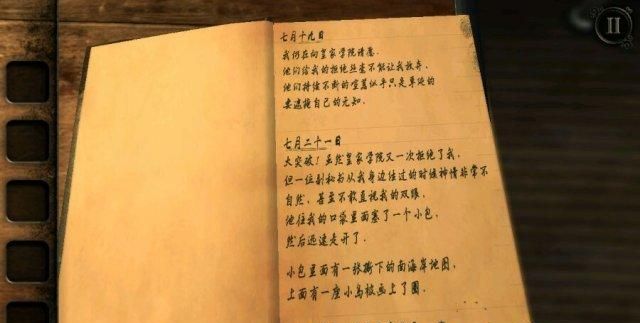 七月十九日
我仍在向皇家学院请愿.
他们给我的拒绝丝毫不能让我放弃.
他们持续不断的喧嚣似乎只是单纯的
要遮掩自己的无知.
七月二十一日
大突破！虽然皇家学院又一次拒绝了我,
但一位副秘书从我身边经过的时候神情非常不
自然, 甚至不敢直视我的双眼.
他往我的口袋里面塞了一个小包,
然后迅速走开了.
小包里面有一张撕下的南海岸地图,
上面有一座小岛被画上了圈.